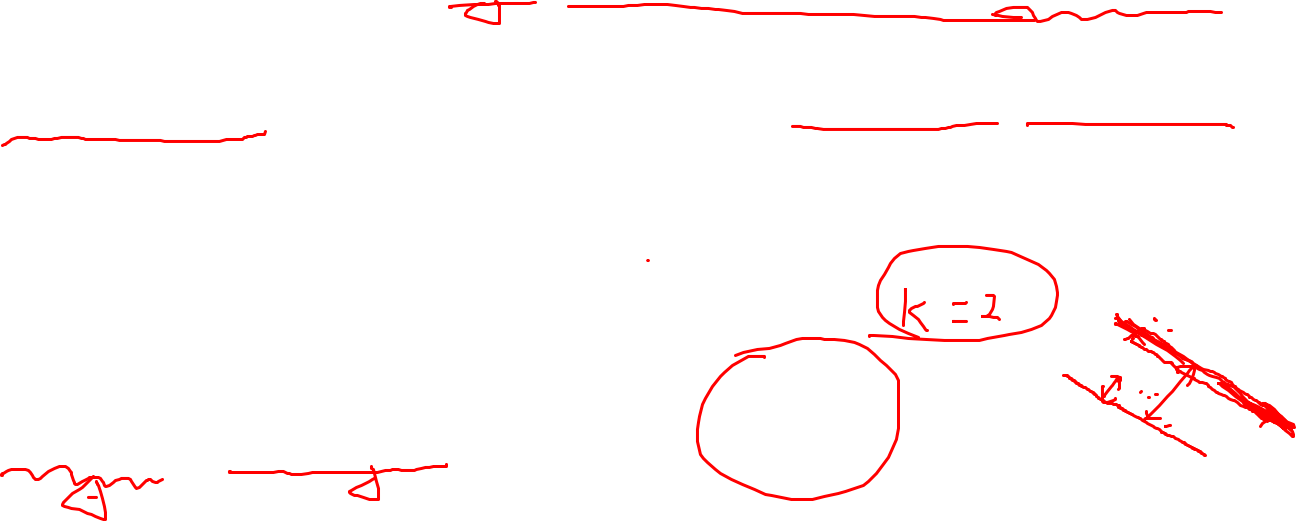 k = 2